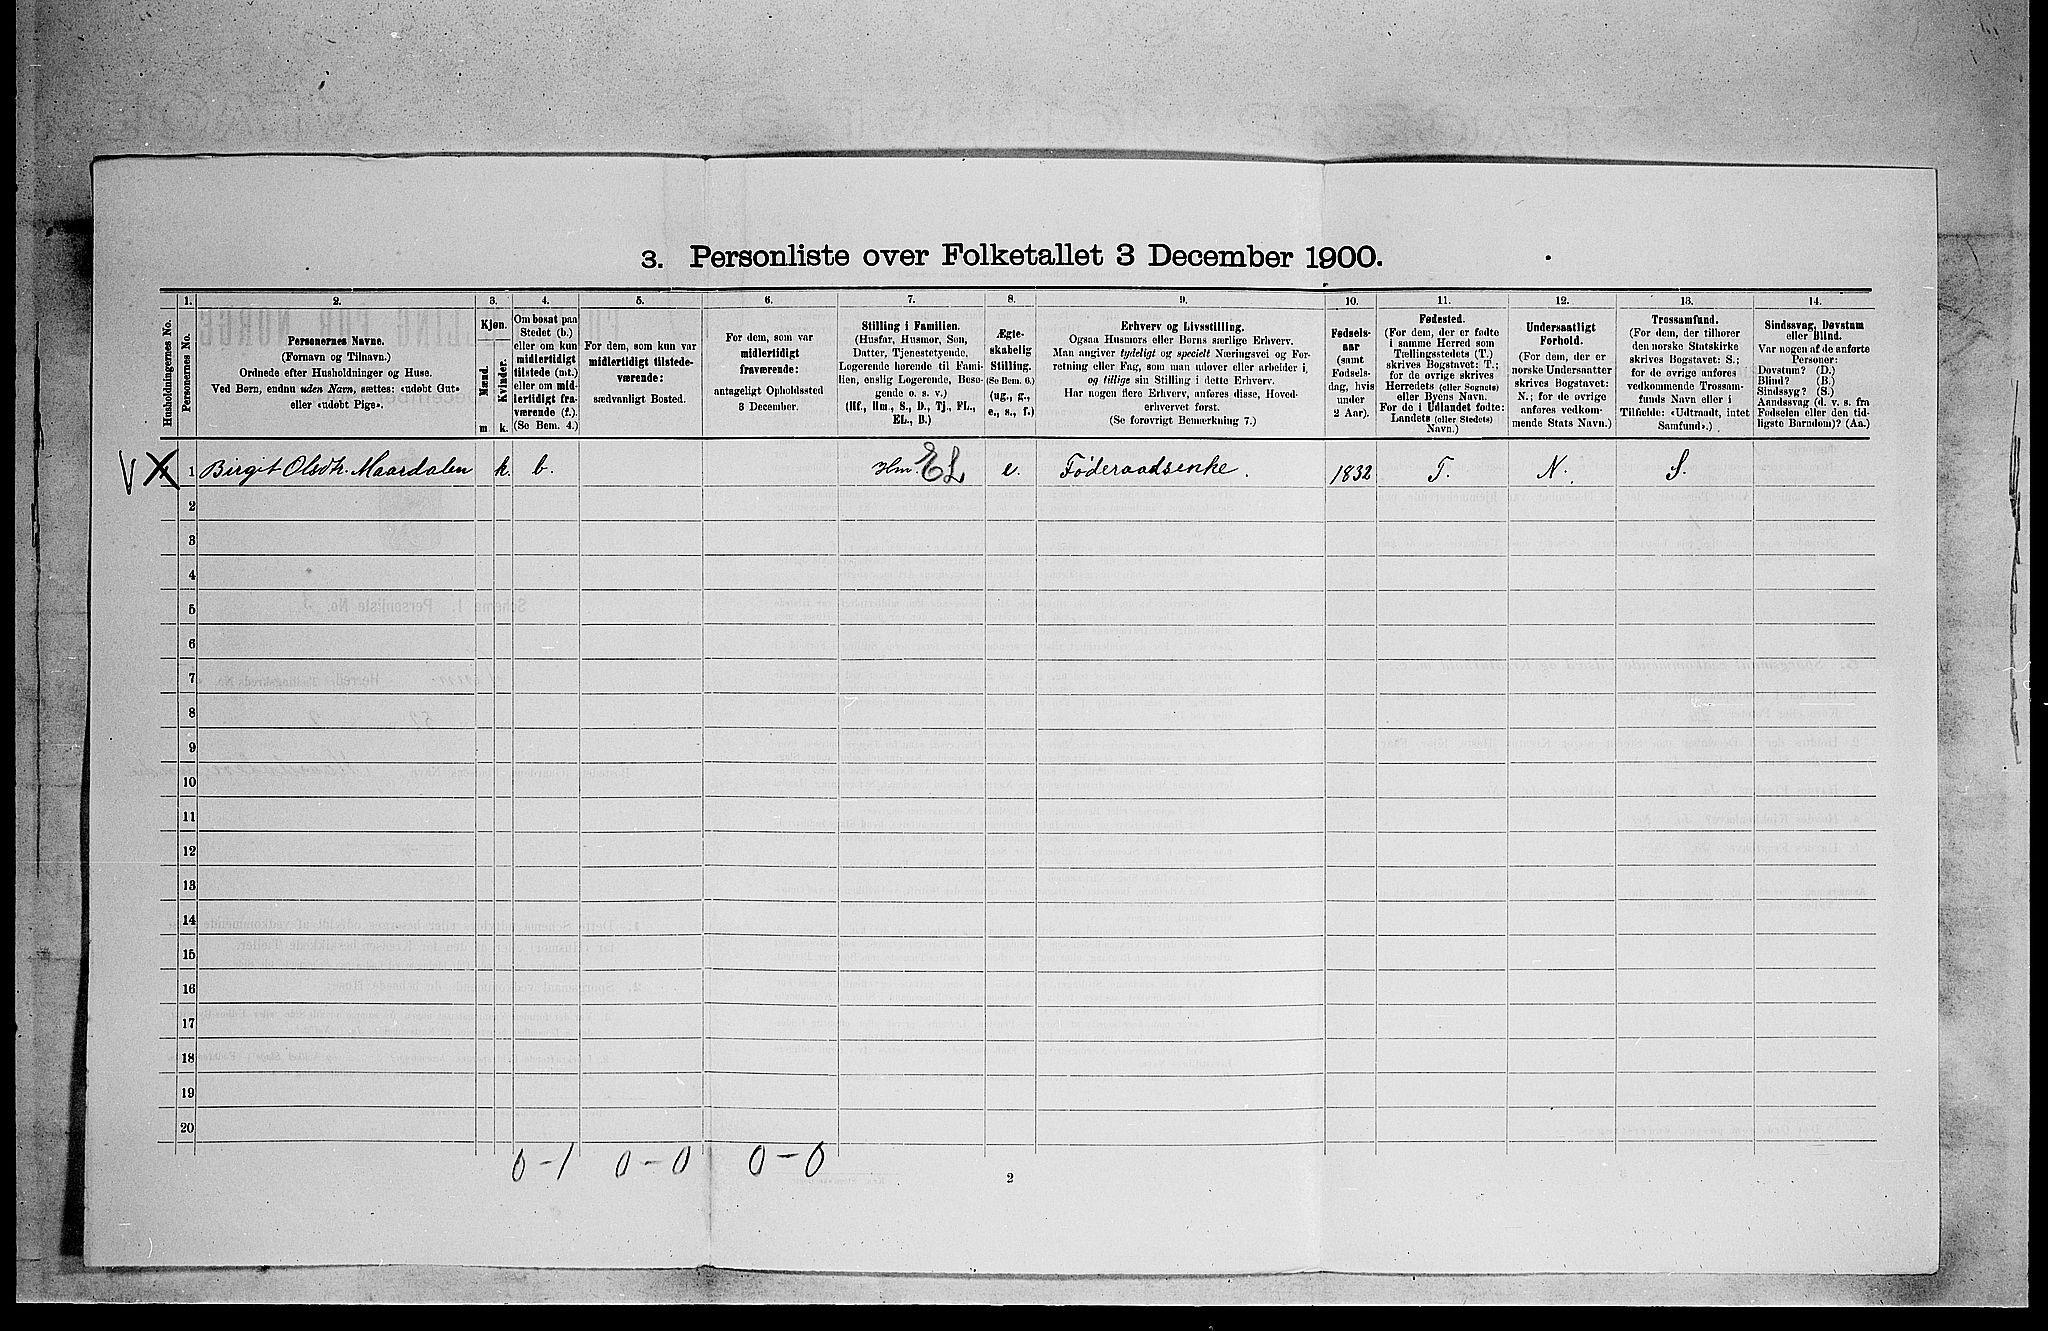 3. Personliste over Folketallet 3 December 1900.
1. 2. 3. 4. 5. 6. 7. 8. 9. 10. 11. 12. 13. 14.
Husholdningernes No.
Personernes No.
Personernes Navne.
(Fornavn og Tilnavn.)
Ordnede efter Husholdninger og Huse.
Ved Børn, endnu uden Navn, sættes: «udøbt Gut»
eller «udøbt Pige».
Kjøn.
Mænd.
Kvinder.
m k.
Om bosat paa
Stedet (b.)
eller om kun
midlertidigt
tilstede (mt.)
eller om mid-
lertidigt fra-
værende (f.).
(Se Bem. 4.)
For dem, som kun var
midlertidigt tilstede-
værende:
sædvanligt Bosted.
For dem, som var
midlertidigt
fraværende:
antageligt Opholdssted
3 December.
Stilling i Familien.
(Husfar, Husmor, Søn,
Datter, Tjenestetyende,
Logerende hørende til Fami-
lien, enslig Logerende, Besø-
gende o. s. v.)
(Hf., Hm., S., D., Tj., FL.,
EL., B.)
Ægte-
skabelig
Stilling.
(Se Bem. 6.)
(ug., g.,
e., s., f.)
Erhverv og Livsstilling.
Ogsaa Husmors eller Børns særlige Erhverv.
Man angiver tydeligt og specielt Næringsvei og For-
retning eller Fag, som man udøver eller arbeider i,
og tillige sin Stilling i dette Erhverv.
Har nogen flere Erhverv, anføres disse, Hoved-
erhvervet først.
(Se forøvrigt Bemerkning 7.)
Fødsels-
aar
(samt
Fødsels-
dag, hvis
under
2 Aar).
Fødested.
(For dem, der er fødte
i samme Herred som
Tællingsstedets (T.)
skrives Bogstavet: T.;
for de øvrige skrives
Herredets (eller Sognets)
eller Byens Navn.
For de i Udlandet fødte:
Landets (eller Stedets)
Navn.)
Undersaatligt
Forhold.
(For dem, der er
norske Undersaatter
skrives Bogstavet:
N.; for de øvrige
anføres vedkom-
mende Stats Navn.)
Trossamfund.
(For dem, der tilhører
den norske Statskirke
skrives Bogstavet: S.;
for de øvrige anføres
vedkommende Trossam-
funds Navn eller i
Tilfælde: «Udtraadt, intet
Samfund».)
Sindssvag, Døvstum
eller Blind.
Var nogen af de anførte
Personer:
Døvstum? (D.)
Blind? (B.)
Sindssyg? (S.)
Aandssvag (d. v. s. fra
Fødselen eller den tid-
ligste Barndom)? (Aa.)
1 Birgit Olsdtr. Maardalen k. b. Hm. EL e. Føderaadsenke. 1832 T. N. S.
2
3
4
5
6
7
8
9
10
11
12
13
14
15
16
17
18
19
20
0-1 0-0 0-0
2